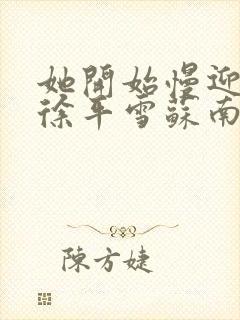 她開始慢迎
徐平雪蘇南
陳方婕